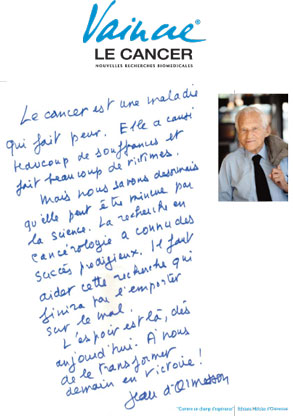 Vaincre®
LE CANCER
NOUVELLES RECHERCHES BIOMEDICALES
Le cancer est une maladie
qui fait peur. Elle a causé
beaucoup de souffrances et
fait beaucoup de victimes.
Mais nous savons désormais
qu'elle peut être vaincue par
la science. La recherche en
cancérologie a connu des
succès prodigieux. Il faut
aider cette recherche qui
finira par l'emporter
sur le mal.
L'espoir est là, dès
aujourd'hui. A nous
de le transformer
demain en victoire !
Jean d'Ormesson